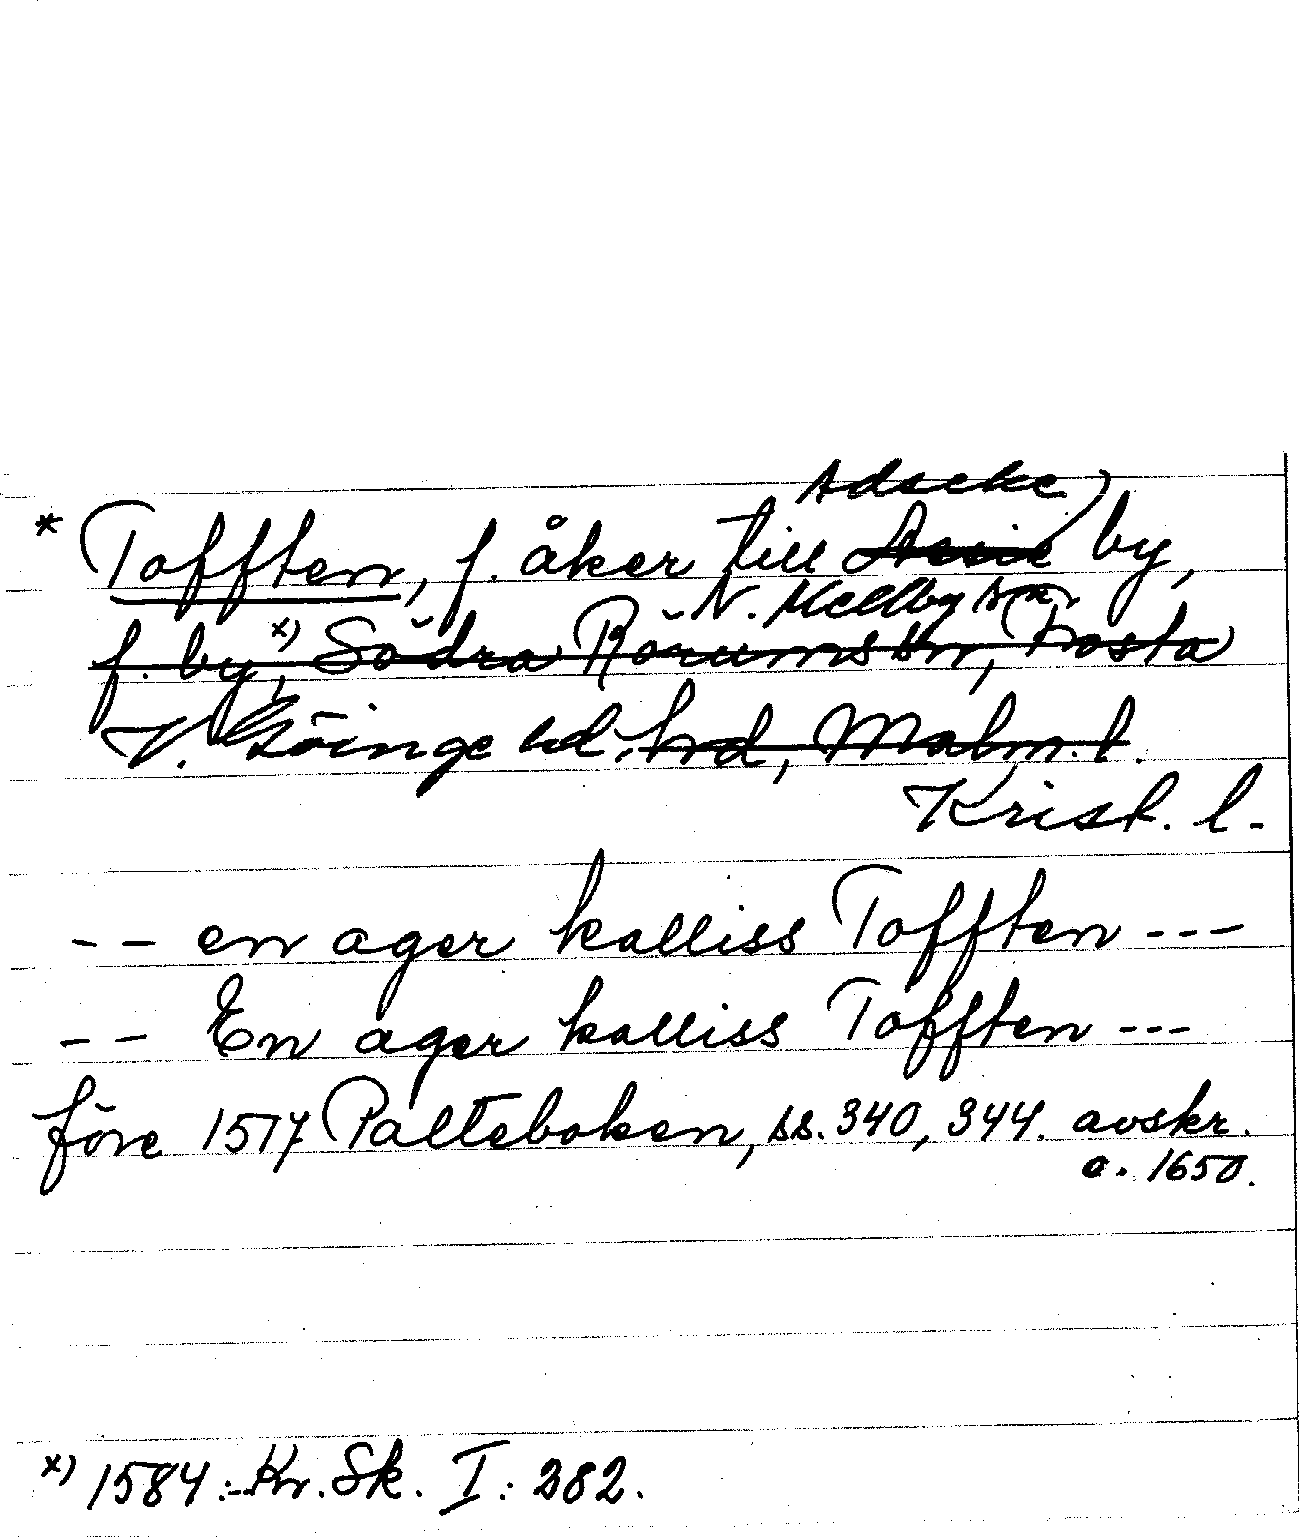 Adseke
* Tofften, f. åker till by,
N. Mellby sn,
f. by, x) Södra Rörums sn, Frosta
V. Göinge hd. hrd, Malm. l.
Krist. l.
-- en ager kalliss Tofften ---
-- En ager kalliss Tofften ---
före 1517 Palteboken, ss. 340, 344. avskr.
c. 1650.
x) 1584: Kr. Sk. I: 282.